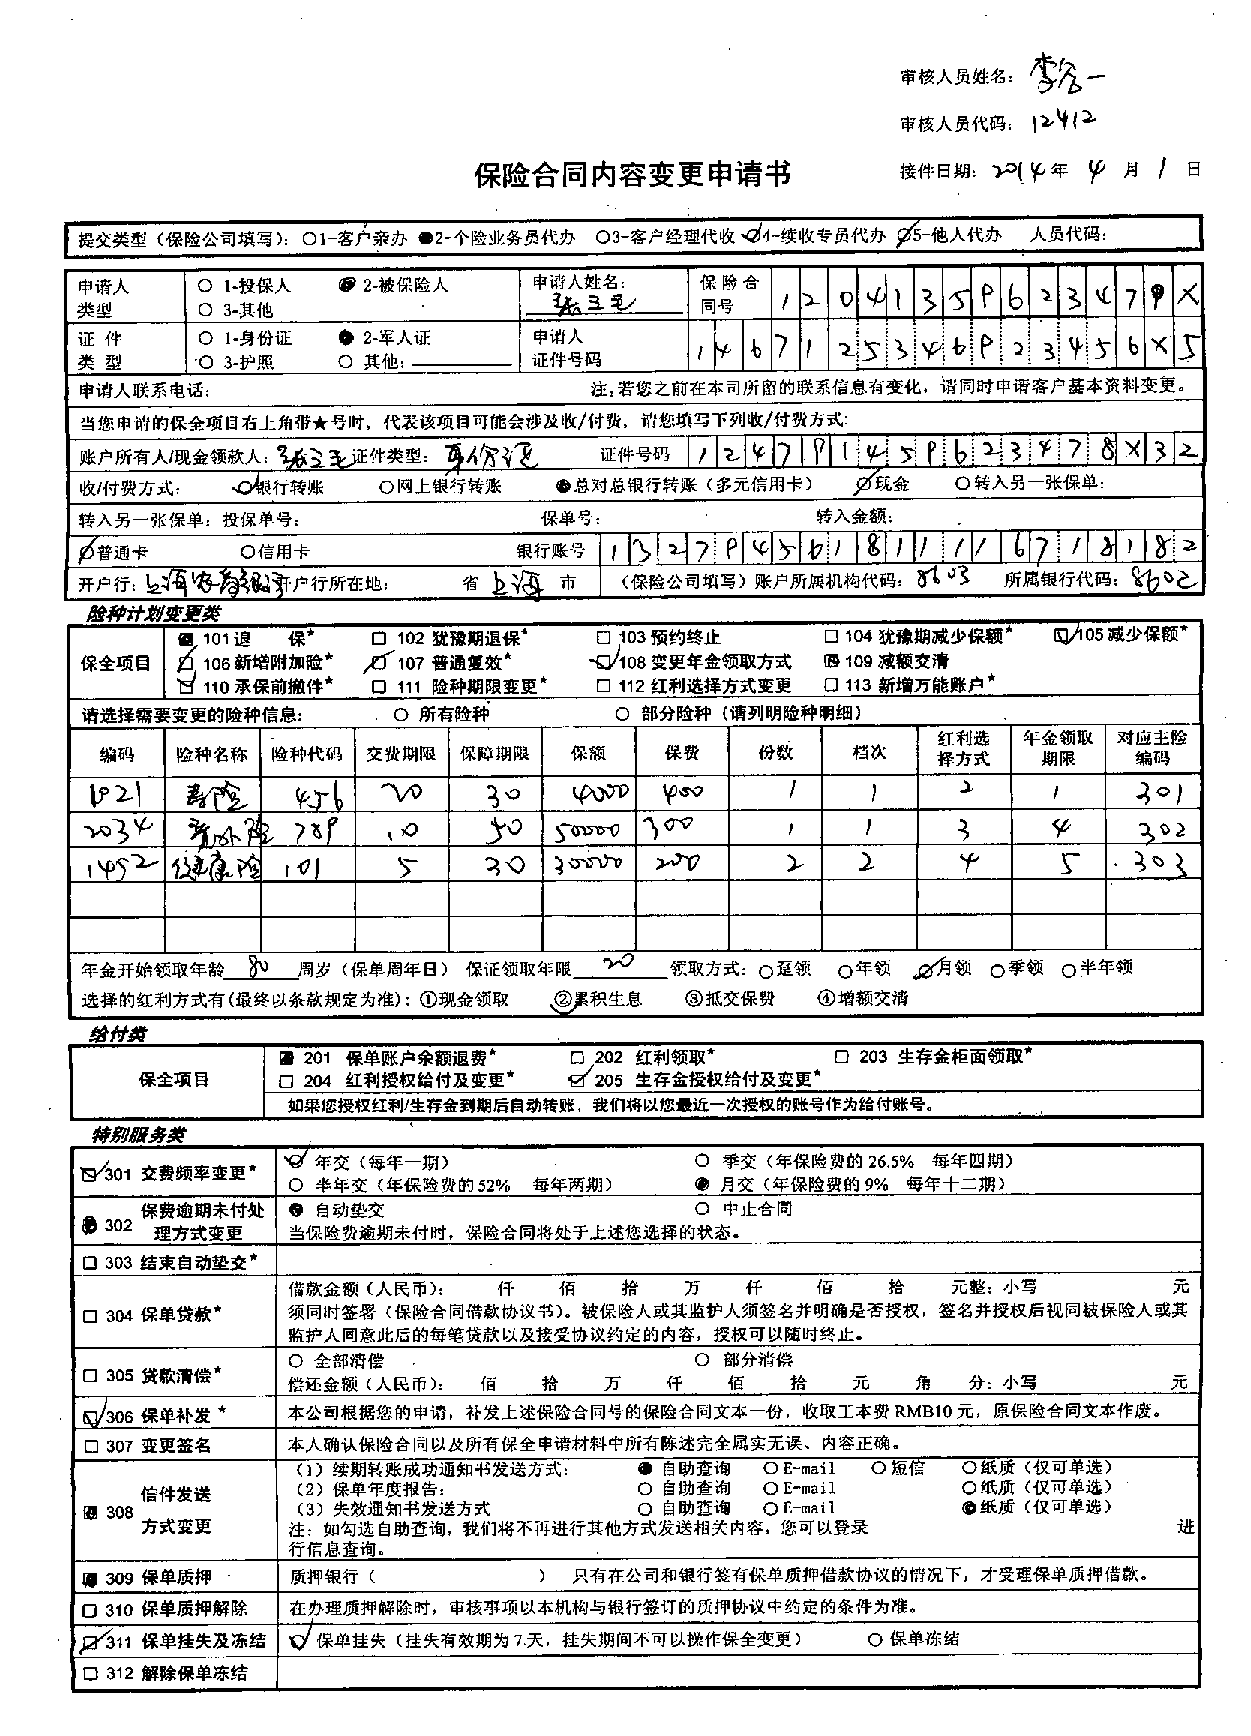 审核人员姓名：李一
审核人员代码：12412
保险合同内容变更申请书
接件日期：2014年4月1日
提交类型（保险公司填写）：○1-客户亲办 ●2-个险业务员代办 ○3-客户经理代收 ○4-续收专员代办 ○5-他人代办 人员代码：
申请人类型 ○ 1-投保人 ● 2-被保险人 申请人姓名：张三毛 保险合同号 1204135P623479X
○ 3-其他
证件类型 ○ 1-身份证 ● 2-军人证 申请人证件号码 1467125346P23456X5
○ 3-护照 ○ 其他：
申请人联系电话： 注：若您之前在本司所留的联系信息有变化，请同时申请客户基本资料变更。
当您申请的保全项目右上角带★号时，代表该项目可能会涉及收/付费，请您填写下列收/付费方式：
账户所有人/现金领款人：张三毛 证件类型：身份证 证件号码 1247P145P623478X32
收/付费方式： ○银行转账 ○网上银行转账 ●总对总银行转账（多元信用卡） ○现金 ○转入另一张保单：
转入另一张保单：投保单号： 保单号： 转入金额：
○普通卡 ○信用卡 银行账号 1327P4561811116718182
开户行：上海 开户行所在地： 省 上海 市 （保险公司填写）账户所属机构代码：8603 所属银行代码：8602
险种计划变更类
保全项目
■ 101 退 保* □ 102 犹豫期退保* □ 103 预约终止 □ 104 犹豫期减少保额* ☑ 105 减少保额*
☑ 106 新增附加险* ☑ 107 普通复效* ☑ 108 变更年金领取方式 ■ 109 减额交清
☑ 110 承保前撤件* □ 111 险种期限变更* □ 112 红利选择方式变更 □ 113 新增万能账户*
请选择需要变更的险种信息： ○ 所有险种 ○ 部分险种（请列明险种明细）
编码 险种名称 险种代码 交费期限 保障期限 保额 保费 份数 档次 红利选择方式 年金领取期限 对应主险编码
1021 寿险 456 20 30 4000 400 1 1 2 1 301
2034 意外险 789 10 50 50000 300 1 1 3 4 302
1452 健康险 101 5 30 30000 200 2 2 4 5 303
年金开始领取年龄 80 周岁（保单周年日） 保证领取年限 20 领取方式：○趸领 ○年领 ○月领 ○季领 ○半年领
选择的红利方式有（最终以条款规定为准）：①现金领取 ②累积生息 ③抵交保费 ④增额交清
给付类
保全项目
■ 201 保单账户余额退费* □ 202 红利领取* □ 203 生存金柜面领取*
□ 204 红利授权给付及变更* ☑ 205 生存金授权给付及变更*
如果您授权红利/生存金到期后自动转账，我们将以您最近一次授权的账号作为给付账号。
特别服务类
☑ 301 交费频率变更* ○ 年交（每年一期） ○ 季交（年保险费的26.5% 每年四期）
○ 半年交（年保险费的52% 每年两期） ● 月交（年保险费的9% 每年十二期）
■ 302 保费逾期未付处理方式变更 ● 自动垫交 ○ 中止合同
当保险费逾期未付时，保险合同将处于上述您选择的状态。
□ 303 结束自动垫交*
□ 304 保单贷款* 借款金额（人民币）： 仟 佰 拾 万 仟 佰 拾 元整：小写 元
须同时签署（保险合同借款协议书）。被保险人或其监护人须签名并明确是否授权，签名并授权后视同被保险人或其
监护人同意此后的每笔贷款以及接受协议约定的内容，授权可以随时终止。
□ 305 贷款清偿* ○ 全部清偿 ○ 部分清偿
偿还金额（人民币）： 佰 拾 万 仟 佰 拾 元 角 分：小写 元
☑ 306 保单补发* 本公司根据您的申请，补发上述保险合同号的保险合同文本一份，收取工本费RMB10元，原保险合同文本作废。
□ 307 变更签名 本人确认保险合同以及所有保全申请材料中所有陈述完全属实无误、内容正确。
■ 308 信件发送方式变更 （1）续期转账成功通知书发送方式： ● 自助查询 ○E-mail ○短信 ○纸质（仅可单选）
（2）保单年度报告： ○ 自助查询 ○E-mail ○纸质（仅可单选）
（3）失效通知书发送方式 ○ 自助查询 ○E-mail ●纸质（仅可单选）
注：如勾选自助查询，我们将不再进行其他方式发送相关内容，您可以登录 进
行信息查询。
■ 309 保单质押 质押银行（ ） 只有在公司和银行签有保单质押借款协议的情况下，才受理保单质押借款。
□ 310 保单质押解除 在办理质押解除时，审核事项以本机构与银行签订的质押协议中约定的条件为准。
☑ 311 保单挂失及冻结 ○ 保单挂失（挂失有效期为7天，挂失期间不可以操作保全变更） ○ 保单冻结
□ 312 解除保单冻结